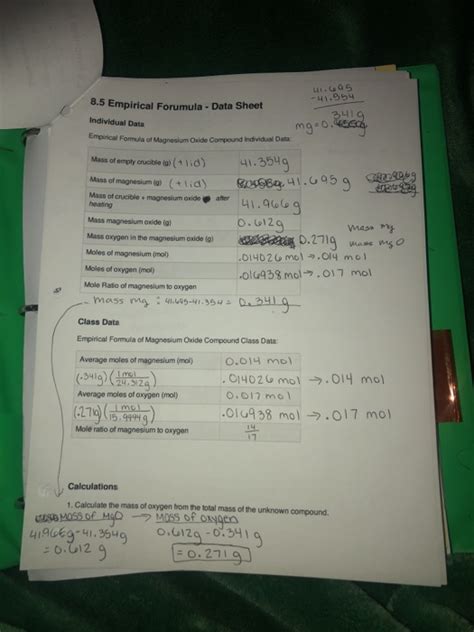 41.695
-41.354
341g
8.5 Empirical Forumula - Data Sheet
mg=0.
Individual Data
Empirical Formula of Magnesium Oxide Compound Individual Data:
Mass of empty crucible (g) (+lid) 41.354g
Mass of magnesium (g) (+lid) 41.695g
Mass of crucible + magnesium oxide after heating 41.966g
Mass magnesium oxide (g) 0.612g
mass mg
Mass oxygen in the magnesium oxide (g) 0.271g
mass mgO
Moles of magnesium (mol) .014026 mol → .014 mol
Moles of oxygen (mol) .016938 mol → .017 mol
Mole Ratio of magnesium to oxygen
mass mg : 41.695-41.354 = 0.341g
Class Data
Empirical Formula of Magnesium Oxide Compound Class Data:
Average moles of magnesium (mol) 0.014 mol
(.341g)(1mol/24.312g) .014026 mol → .014 mol
Average moles of oxygen (mol) 0.017 mol
(.271g)(1mol/15.9994g) .016938 mol → .017 mol
Mole ratio of magnesium to oxygen 14/17
Calculations
1. Calculate the mass of oxygen from the total mass of the unknown compound.
Mass of MgO → Mass of oxygen
41.966g-41.354g 0.612g-0.341g
= 0.612g = 0.271g